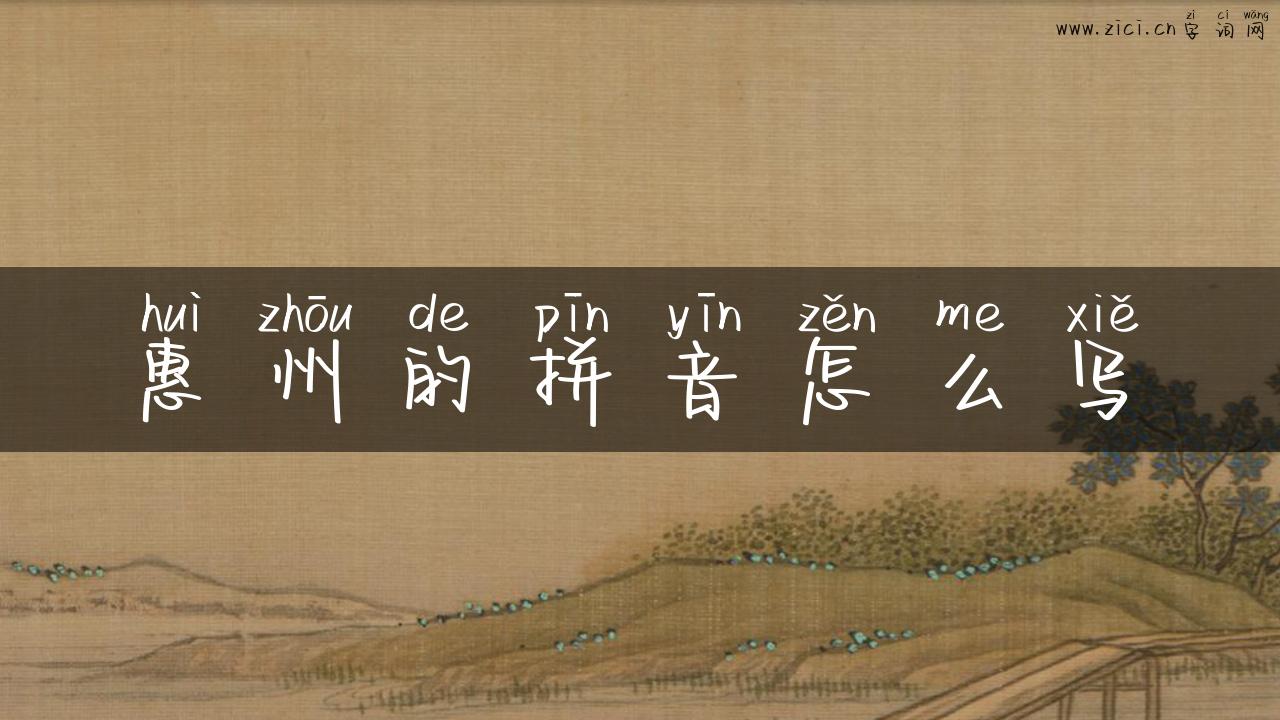 zì cí wǎng
www.zici.cn字词网
huì zhōu de pīn yīn zěn me xiě
惠州的拼音怎么写